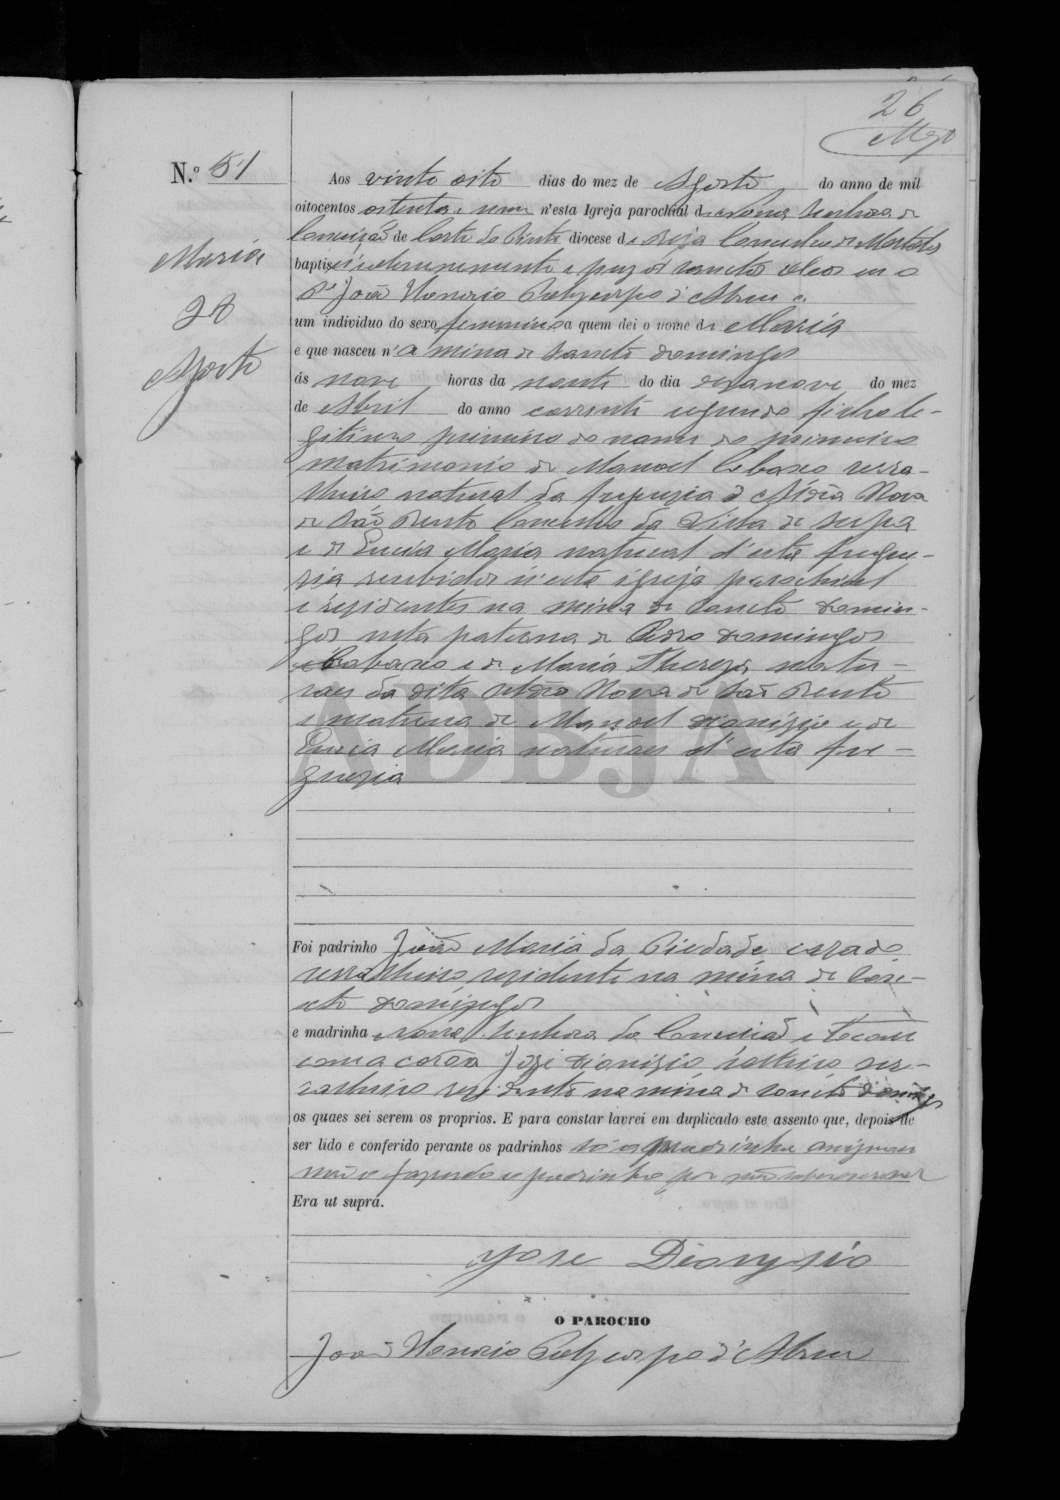 26
N.º 51
Maria
28
Agosto
Aos vinte oito dias do mez de Agosto do anno de mil
oitocentos oitenta e um n'esta Igreja parochial de Nossa Senhora da
Conceição de Corte do Pinto diocese de Beja Concelho de Mertola
baptisei solemnemente e puz os sanctos oleos eu o
Pe João Honorio Polycarpo d'Abreu a
um individuo do sexo feminino a quem dei o nome de Maria
e que nasceu n'a mina de Sancto Domingos
ás nove horas da noute do dia desanove do mez
de Abril do anno corrente segundo filho le-
gitimo primeiro do nome do primeiro
matrimonio de Manoel Cabaxo serra-
lheiro natural da freguezia d'Aldeia Nova
de São Bento Concelho da Villa de Serpa
e de Luzia Maria natural d'esta fregue-
sia recebidos n'esta igreja parochial
e residentes na mina de Sancto Domin-
gos neta paterna de Pedro Domingos
Cabaxo e de Maria Thereza natu-
raes da dita Aldeia Nova de São Bento
e materna de Manoel Dionizio e de
Luzia Maria naturaes d'esta fre-
guezia
ADBJA
Foi padrinho João Maria da Piedade casado
serralheiro residente na mina de San-
cto Domingos
e madrinha Nossa Senhora da Conceição e tocou
com a corôa José Dionizio solteiro ser-
ralheiro residente na mina de Sancto Domingos
os quaes sei serem os proprios. E para constar lavrei em duplicado este assento que, depois de
ser lido e conferido perante os padrinhos só a madrinha assignou
não o fazendo o padrinho por não saber escrever
Era ut supra.
Jose Dionysio
O PAROCHO
João Honorio Polycarpo d'Abreu